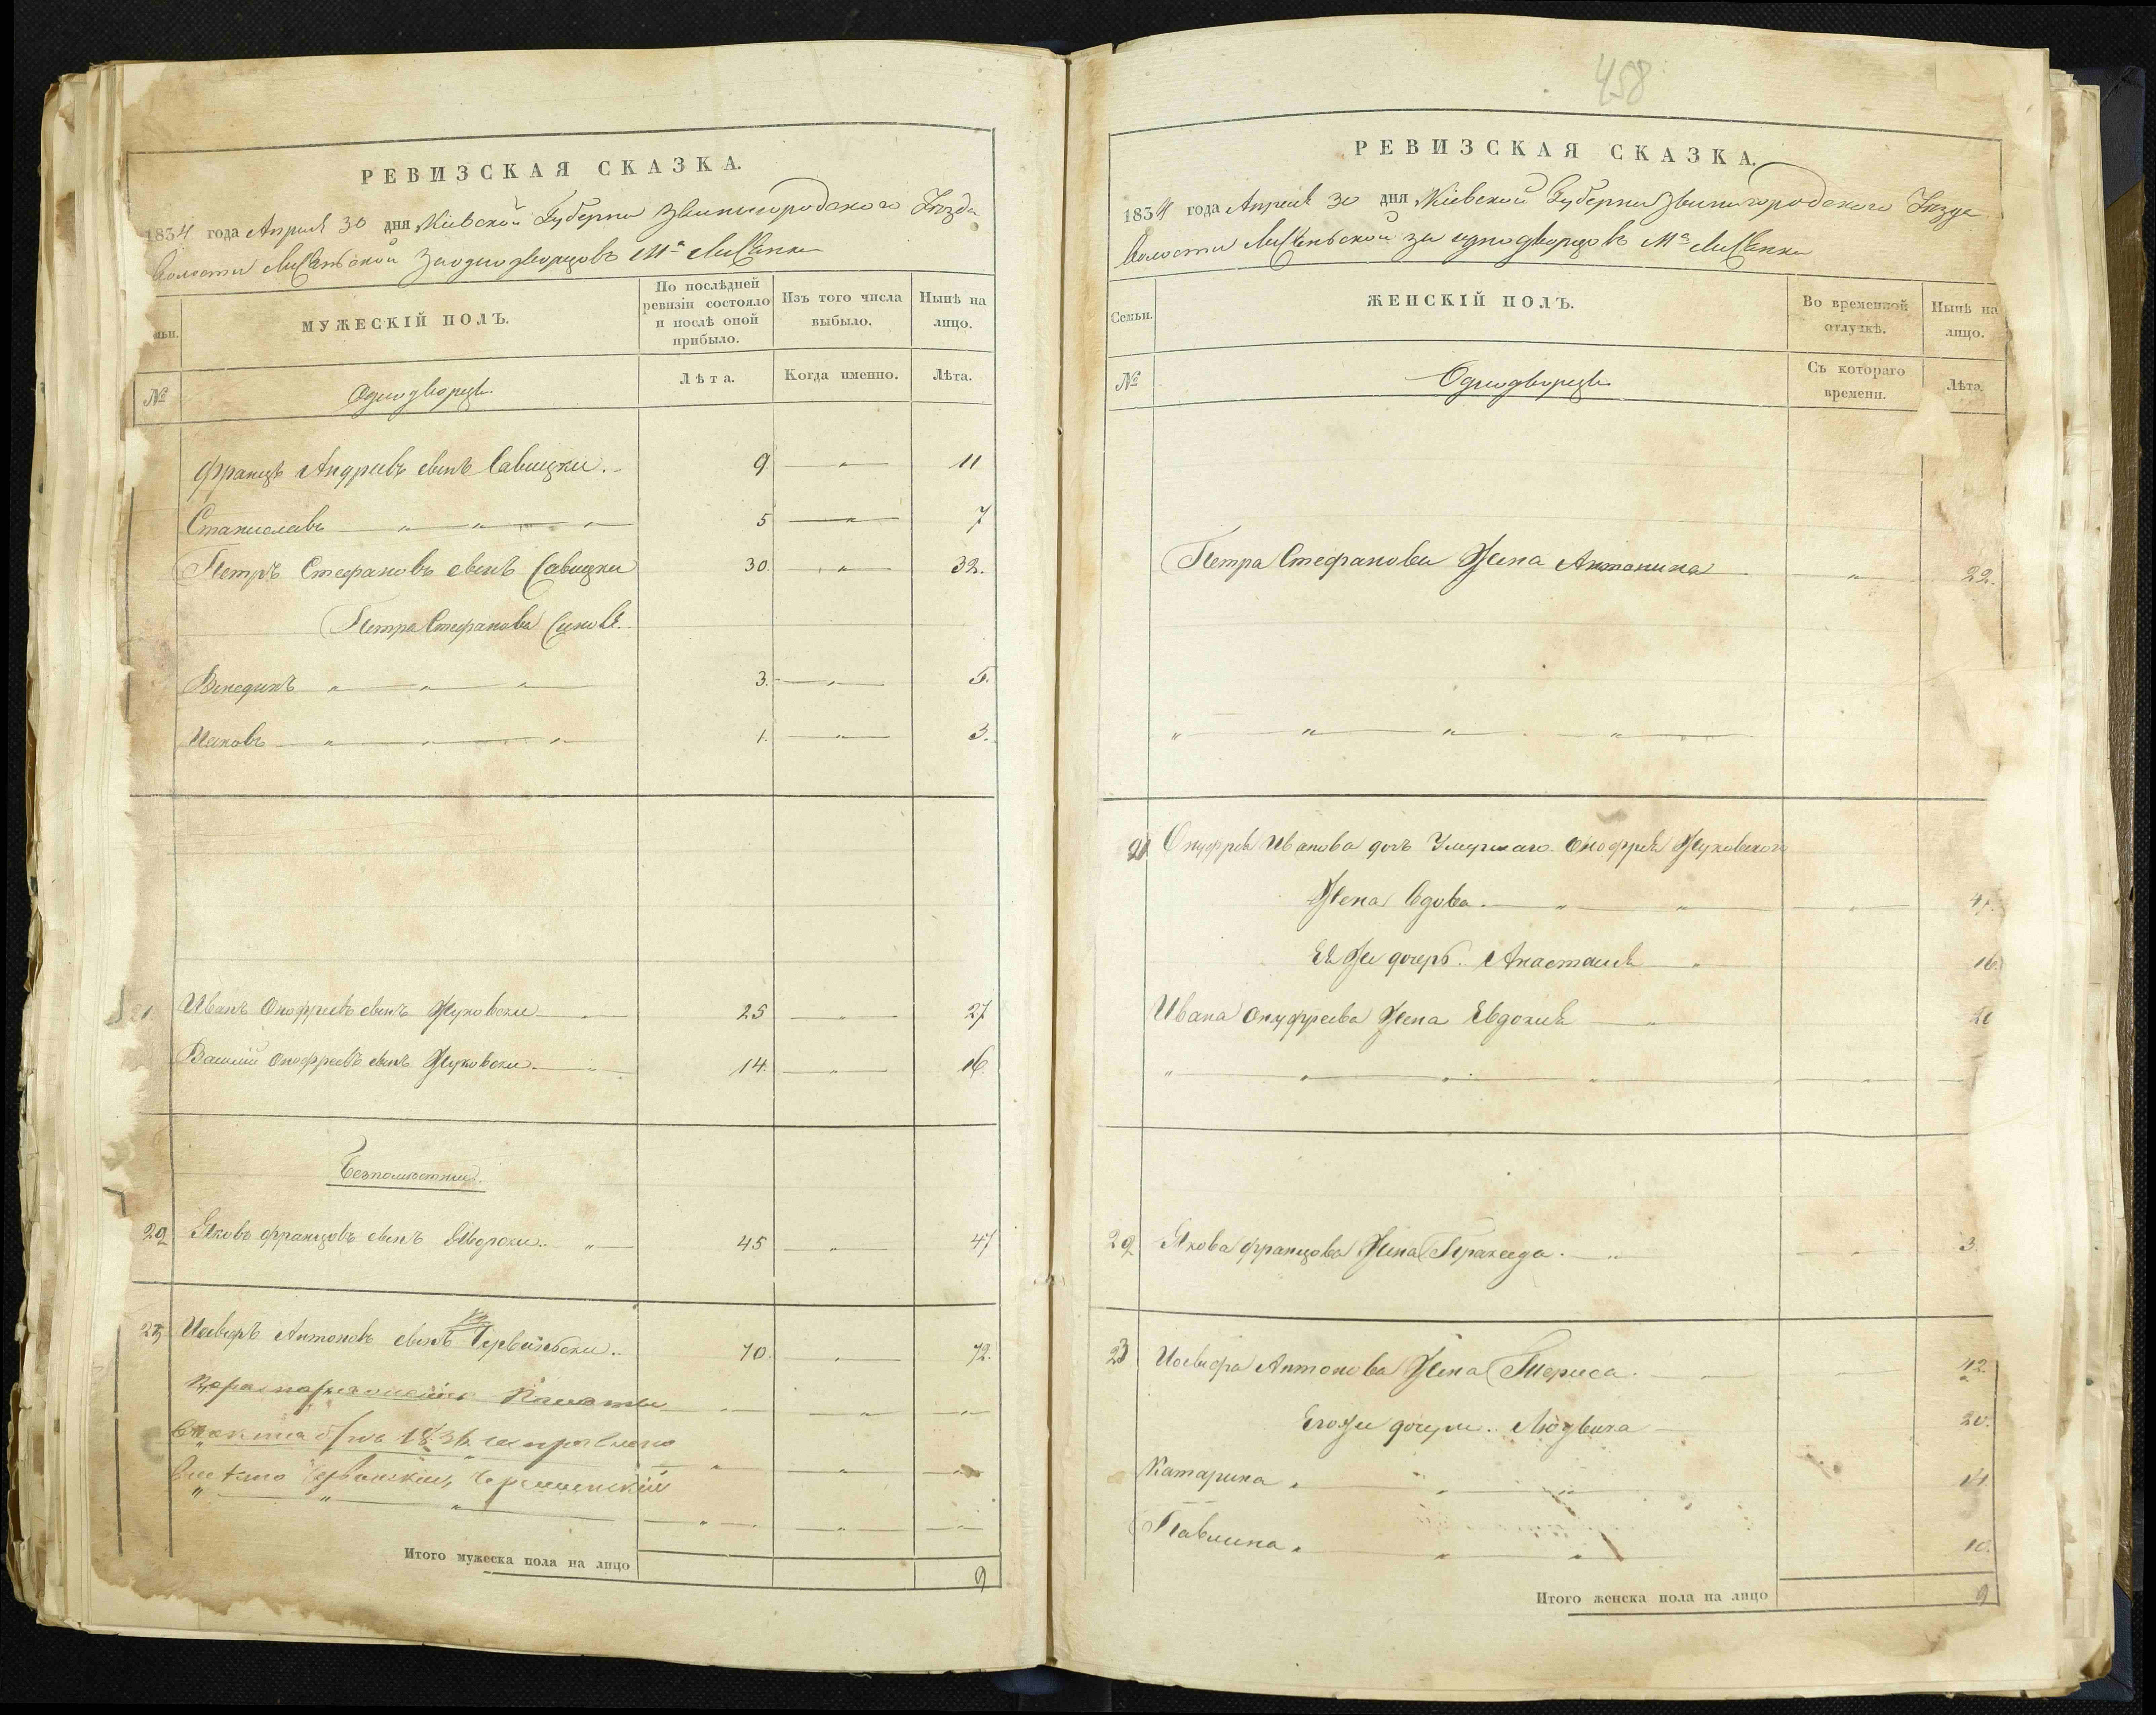 РЕВИЗСКАЯ СКАЗКА.
1834 года Апреля 30 дня Кіевской Губерніи Звенигородского Уѣзда
Волости Лисянской За однодворцовъ Мᵃ Лисянки
МУЖЕСКІЙ ПОЛЪ.
По послѣдней ревизіи состояло и послѣ оной прибыло.
Изъ того числа выбыло.
Нынѣ на лицо.
№
Однодворцы.
Лѣта.
Когда именно.
Лѣта.
Францъ Андреевъ сынъ Савицки. 9 — " — 11
Станиславъ — " — " — " 5 — " — 7
Петръ Стефановъ сынъ Савицки 30. — " — 32.
Петра Стефанова Синовя.
Венедикъ " — " — " 3. — " — 5.
Иаковъ — " — " — " 1. — " — 3.
21. Иванъ Онофріевъ сынъ Жуковски — " 25 — " — 27
Василій Онофреевъ сынъ Жуковски. — " 14. — " — 16.
Безпоместни.
22 Яковъ Францовъ сынъ Яворски. " — 45 — " — 47
23 Иосифъ Антоновъ сынъ Червиньски. 70. — " — 72.
1836
Итого мужеска пола на лицо 9
458
РЕВИЗСКАЯ СКАЗКА.
1834 года Апреля 30 дня Кіевской Губерніи Звенигородского Уѣзда
Волости Лисянской за однодворцовъ Мᵃ Лисянки
Семьи.
ЖЕНСКІЙ ПОЛЪ.
Во временной отлучкѣ.
Нынѣ на лицо.
№
Однодворцы
Съ котораго времени.
Лѣта.
Петра Стефанова Жена Антонина — " — 22.
" — " — " — " —
21 Онуфрія Иванова Умершаго Онофрія Жуковского
Жена Вдова. — " — " — " —
Ея же дочерь. Анастасія — " 16.
Ивана Онуфреева Жена Евдокия — "
" — " — " — " — " —
22 Якова Францова Жена Пракседа. — " — " — 3
23 Иосифа Антонова Жена Тереса. — 42.
Егоже дочери. Людвика — 20.
Катарина " — " — " 14
Павлина " — " — " 10.
Итого женска пола на лицо 9